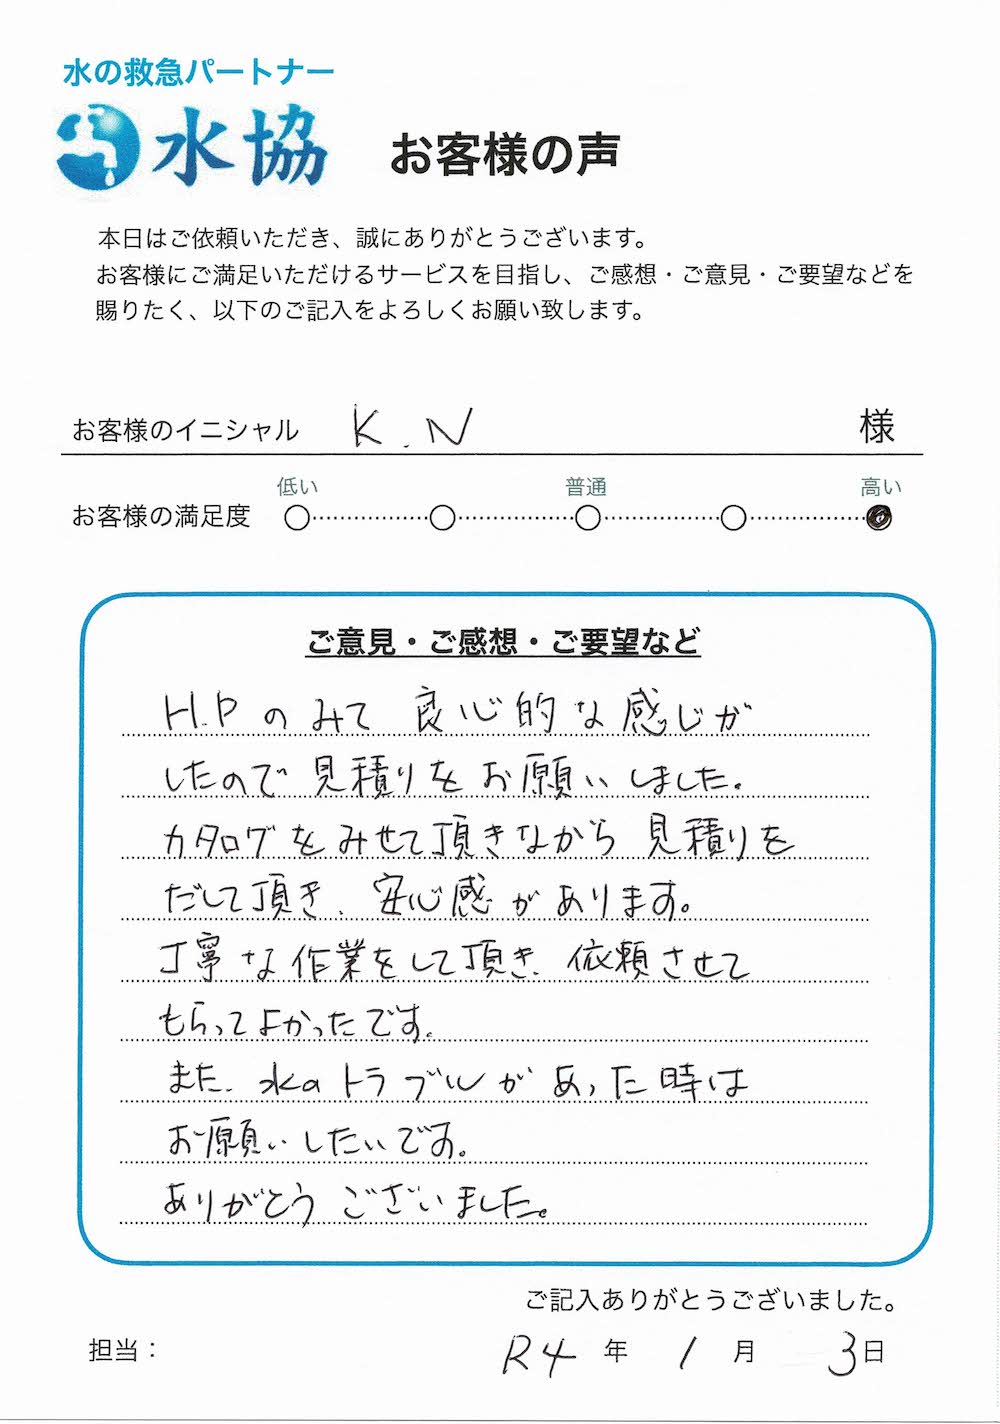 水の救急パートナー
水協
お客様の声
本日はご依頼いただき、誠にありがとうございます。
お客様にご満足いただけるサービスを目指し、ご感想・ご意見・ご要望などを
賜りたく、以下のご記入をよろしくお願い致します。
お客様のイニシャル K.N 様
低い 普通 高い
お客様の満足度
ご意見・ご感想・ご要望など
H.Pのみて 良心的な感じが
したので見積りをお願いしました。
カタログをみせて頂きながら 見積りを
だして頂き、安心感があります。
丁寧な作業をして頂き、依頼させて
もらってよかったです。
また、水のトラブルがあった時は
お願いしたいです。
ありがとうございました。
ご記入ありがとうございました。
担当： R4 年 1 月 3日